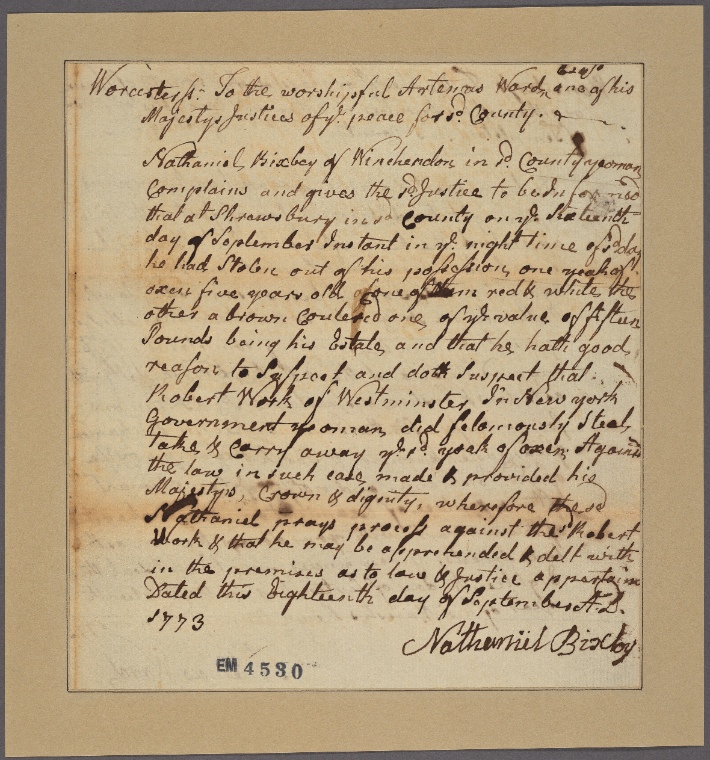 Esqr
Worcester ss. To the worshipful Artemas Ward one of his
Majestys Justices of ye peace for sd County.
Nathaniel Bixbey of Winchendon in sd County yeoman
Complains and gives the sd Justice to be Informed
that at Shrewsbury in sd County on ye Sixteenth
day of September Instant in ye night time of sd day
he had Stolen out of his possession one yoak of
oxen five years old one of them red & white the
other a brown Coulered one of ye value of fifteen
Pounds being his Estate and that he hath good
reason to Suspect and doth Suspect that
Robert Work of Westminster In New york
Government yeoman did felomously Steal
take & carry away ye sd yoak of oxen Against
the law in such case made & provided his
Majestys, Crown & dignity, wherefore the sd
Nathaniel prays process against the sd Robert
Work & that he may be apprehended & delt with
in the premises as to law & Justice appertain
Dated this Eighteenth day of September A.D.
1773
Nathaniel Bixby
EM 4530